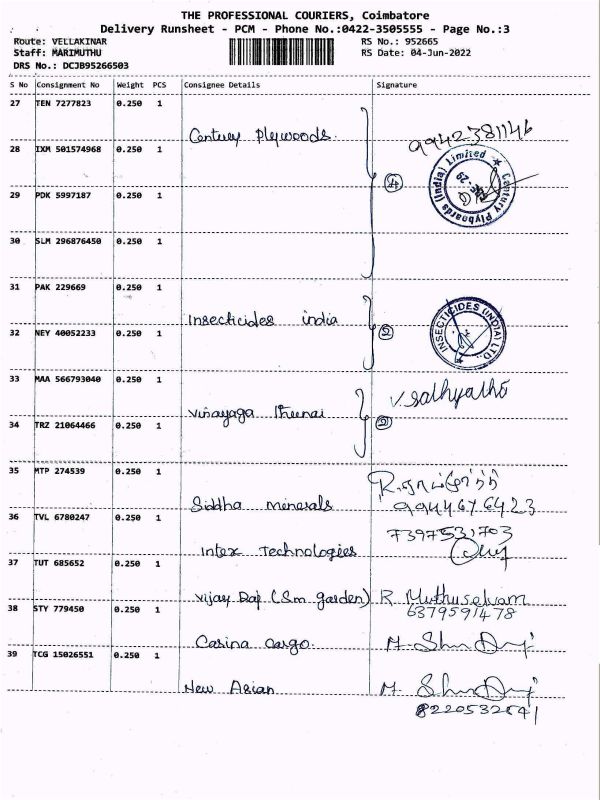 THE PROFESSIONAL COURIERS, Coimbatore
Delivery Runsheet - PCM - Phone No.:0422-3505555 - Page No.:3
Route: VELLAKINAR
RS No.: 952665
Staff: MARIMUTHU
RS Date: 04-Jun-2022
DRS No.: DCJB95266503
S No Consignment No Weight PCS Consignee Details Signature
27 TEN 7277823 0.250 1
Century Plywoods. 9942381146
28 IXM 501574968 0.250 1
④ Century Plyboards (India) Limited
29 PDK 5997187 0.250 1
30 SLM 296876450 0.250 1
31 PAK 229669 0.250 1
Insecticides india ② INSECTICIDES (INDIA) LTD.
32 NEY 40052233 0.250 1
33 MAA 566793040 0.250 1
Vinayaga ② V. Sathyatho
34 TRZ 21064466 0.250 1
35 MTP 274539 0.250 1
Siddha minerals 9944676423
36 TVL 6780247 0.250 1
7397531703
Intex Technologies
37 TUT 685652 0.250 1
Vijay Raj (Sm garden) R Muthuselvam
6379591478
38 STY 779450 0.250 1
Casina cargo.
39 TCG 15026551 0.250 1
New Asian